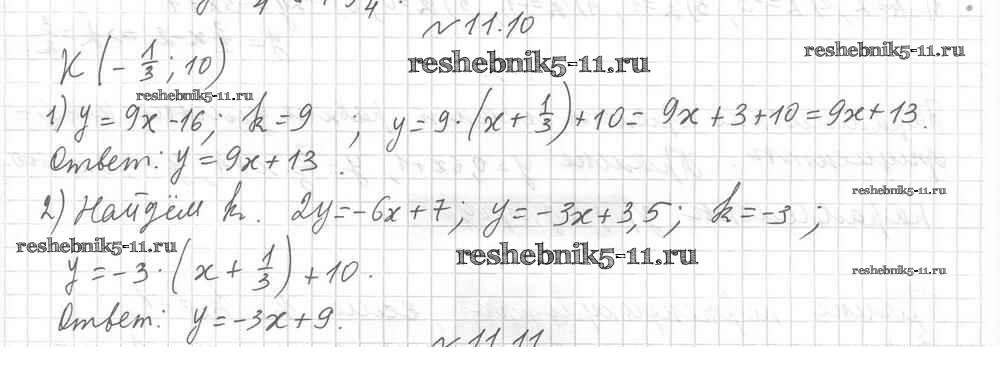 №11.10
K (-1/3; 10)
reshebnik5-11.ru
reshebnik5-11.ru
reshebnik5-11.ru
1) y = 9x - 16; k = 9; y = 9·(x + 1/3) + 10 = 9x + 3 + 10 = 9x + 13.
Ответ: y = 9x + 13.
reshebnik5-11.ru
2) Найдём k. 2y = -6x + 7; y = -3x + 3,5; k = -3;
reshebnik5-11.ru
reshebnik5-11.ru
y = -3·(x + 1/3) + 10.
reshebnik5-11.ru
Ответ: y = -3x + 9.
№11.11